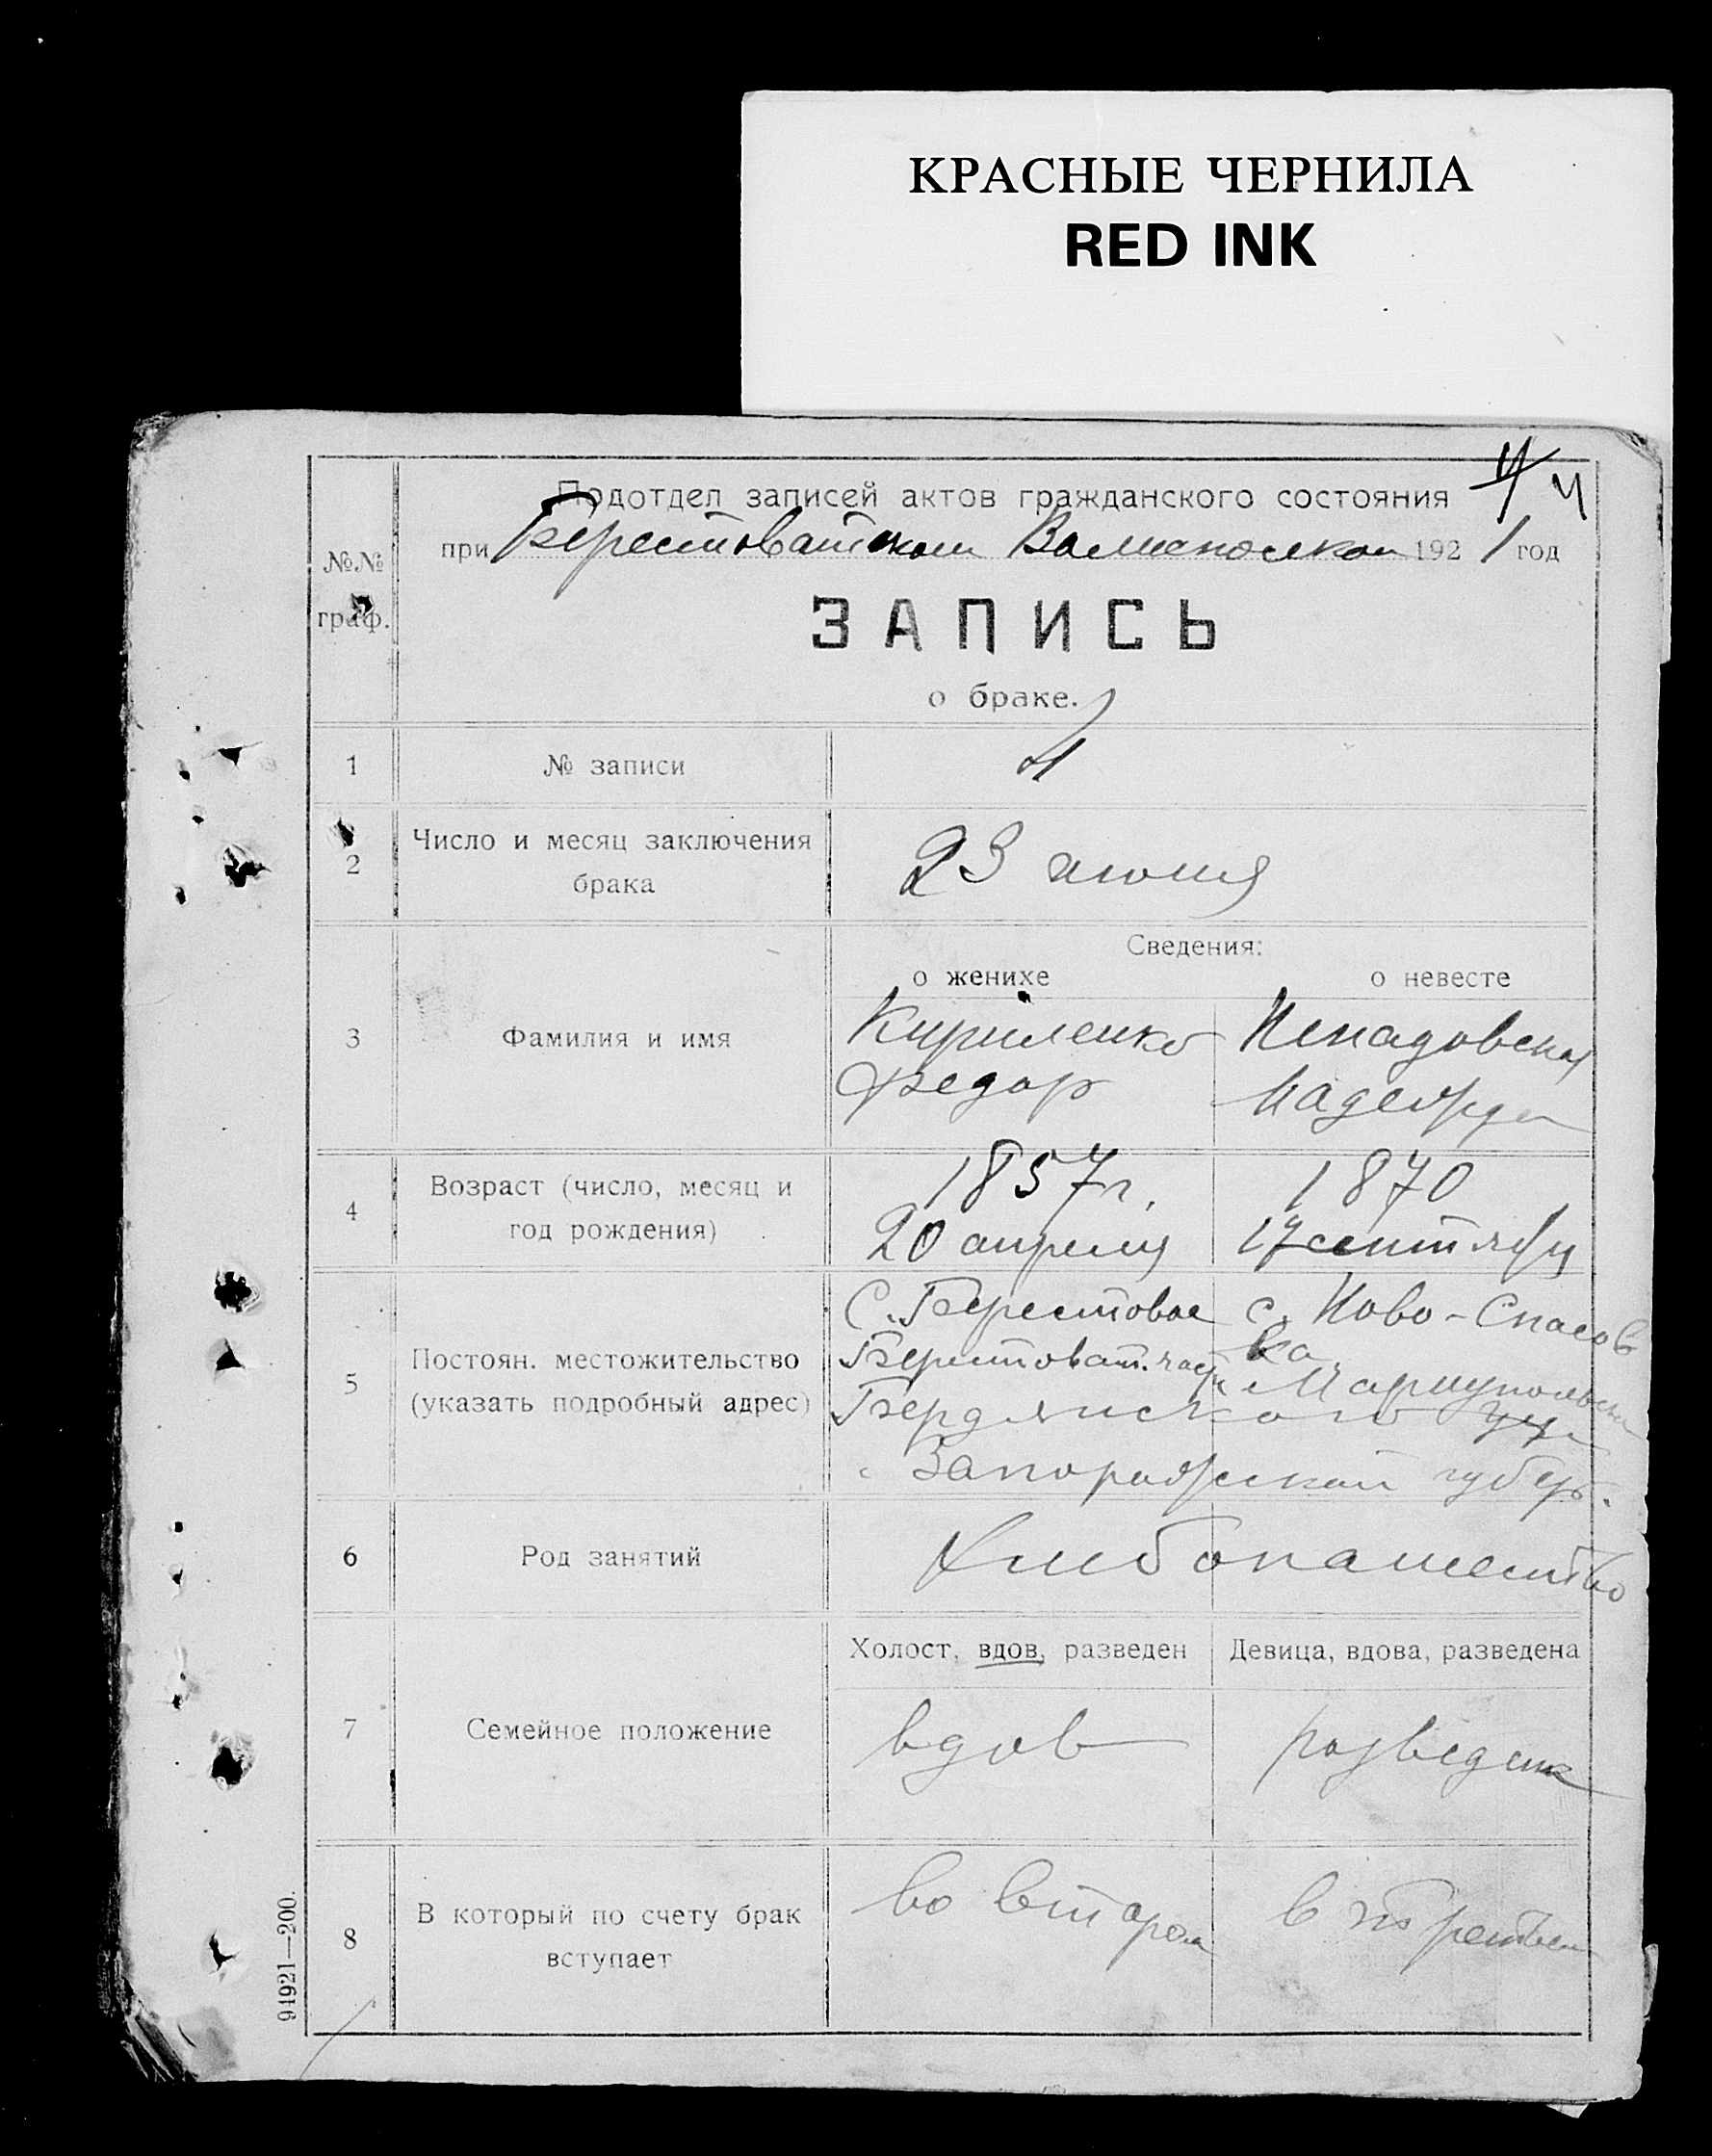 КРАСНЫЕ ЧЕРНИЛА
RED INK
4 4
Подотдел записей актов гражданского состояния
при Берестоватском Волисполком 1921 год
№№
граф.
ЗАПИСЬ
о браке.
1 № записи 4
2 Число и месяц заключения
брака
23 июня
Сведения:
о женихе о невесте
3 Фамилия и имя
Кириленко
Федор
Ненадовская
Надежда
4 Возраст (число, месяц и
год рождения)
1857 г.
20 апреля
1870
17 сентября
5 Постоян. местожительство
(указать подробный адрес)
С. Берестовое
Берестоват.
Бердянского
с. Ново-Спасов
ка
Мариупольск
Запорожской губер.
6 Род занятий Хлебопашество
7 Семейное положение
Холост, вдов, разведен Девица, вдова, разведена
вдов разведена
8 В который по счету брак
вступает
во второй в третьем
91921—200.